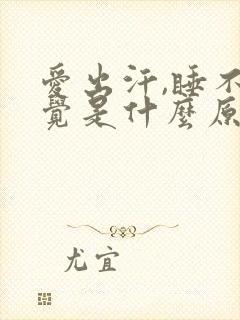 愛出汗,睡不
覺是什麼原
尤宜